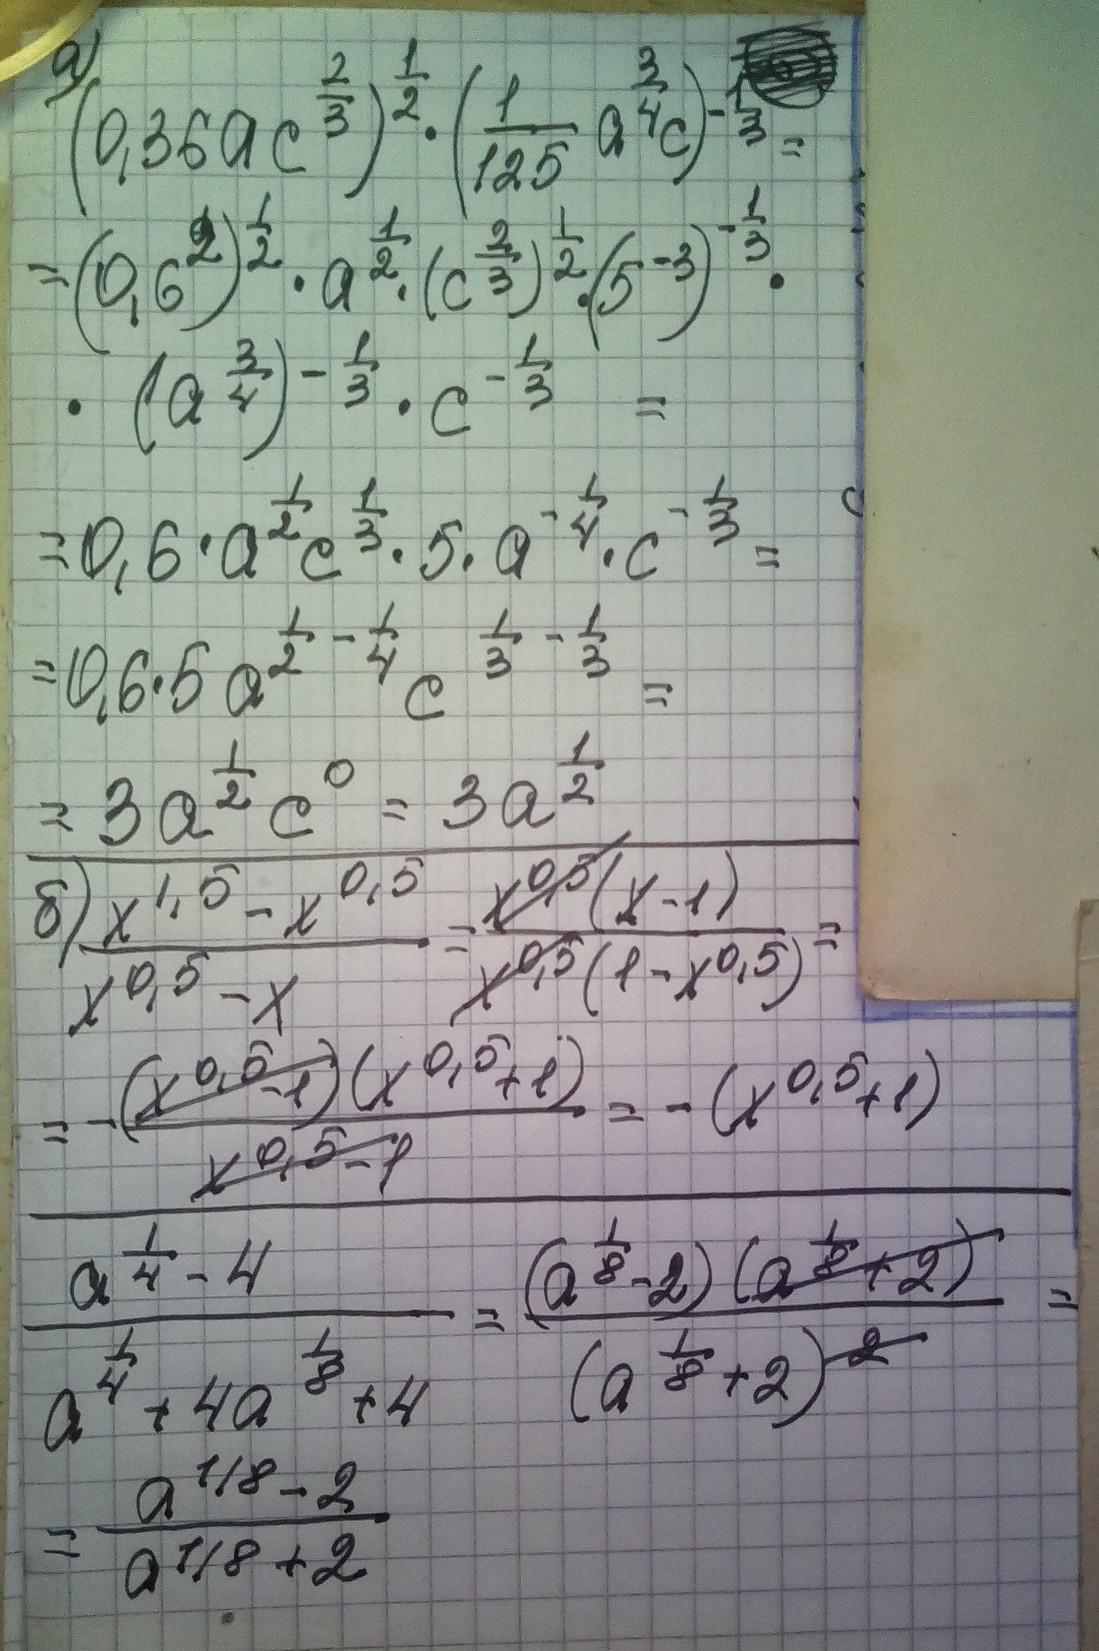 а) (0,36ac^{2/3})^{1/2} · (1/125 a^{3/4}c)^{-1/3} =
= (0,6^2)^{1/2} · a^{1/2} · (c^{2/3})^{1/2} · (5^{-3})^{-1/3} ·
· (a^{3/4})^{-1/3} · c^{-1/3} =
= 0,6 · a^{1/2} c^{1/3} · 5 · a^{-1/4} · c^{-1/3} =
= 0,6 · 5 a^{1/2 - 1/4} c^{1/3 - 1/3} =
= 3a^{1/2} c^0 = 3a^{1/2}
б) (x^{1,5} - x^{0,5})/(x^{0,5} - x) = (x^{0,5}(x-1))/(x^{0,5}(1-x^{0,5})) =
= -((x^{0,5}-1)(x^{0,5}+1))/(x^{0,5}-1) = -(x^{0,5}+1)
(a^{1/4} - 4)/(a^{1/4} + 4a^{1/8} + 4) = ((a^{1/8}-2)(a^{1/8}+2))/((a^{1/8}+2)^2) =
= (a^{1/8} - 2)/(a^{1/8} + 2)